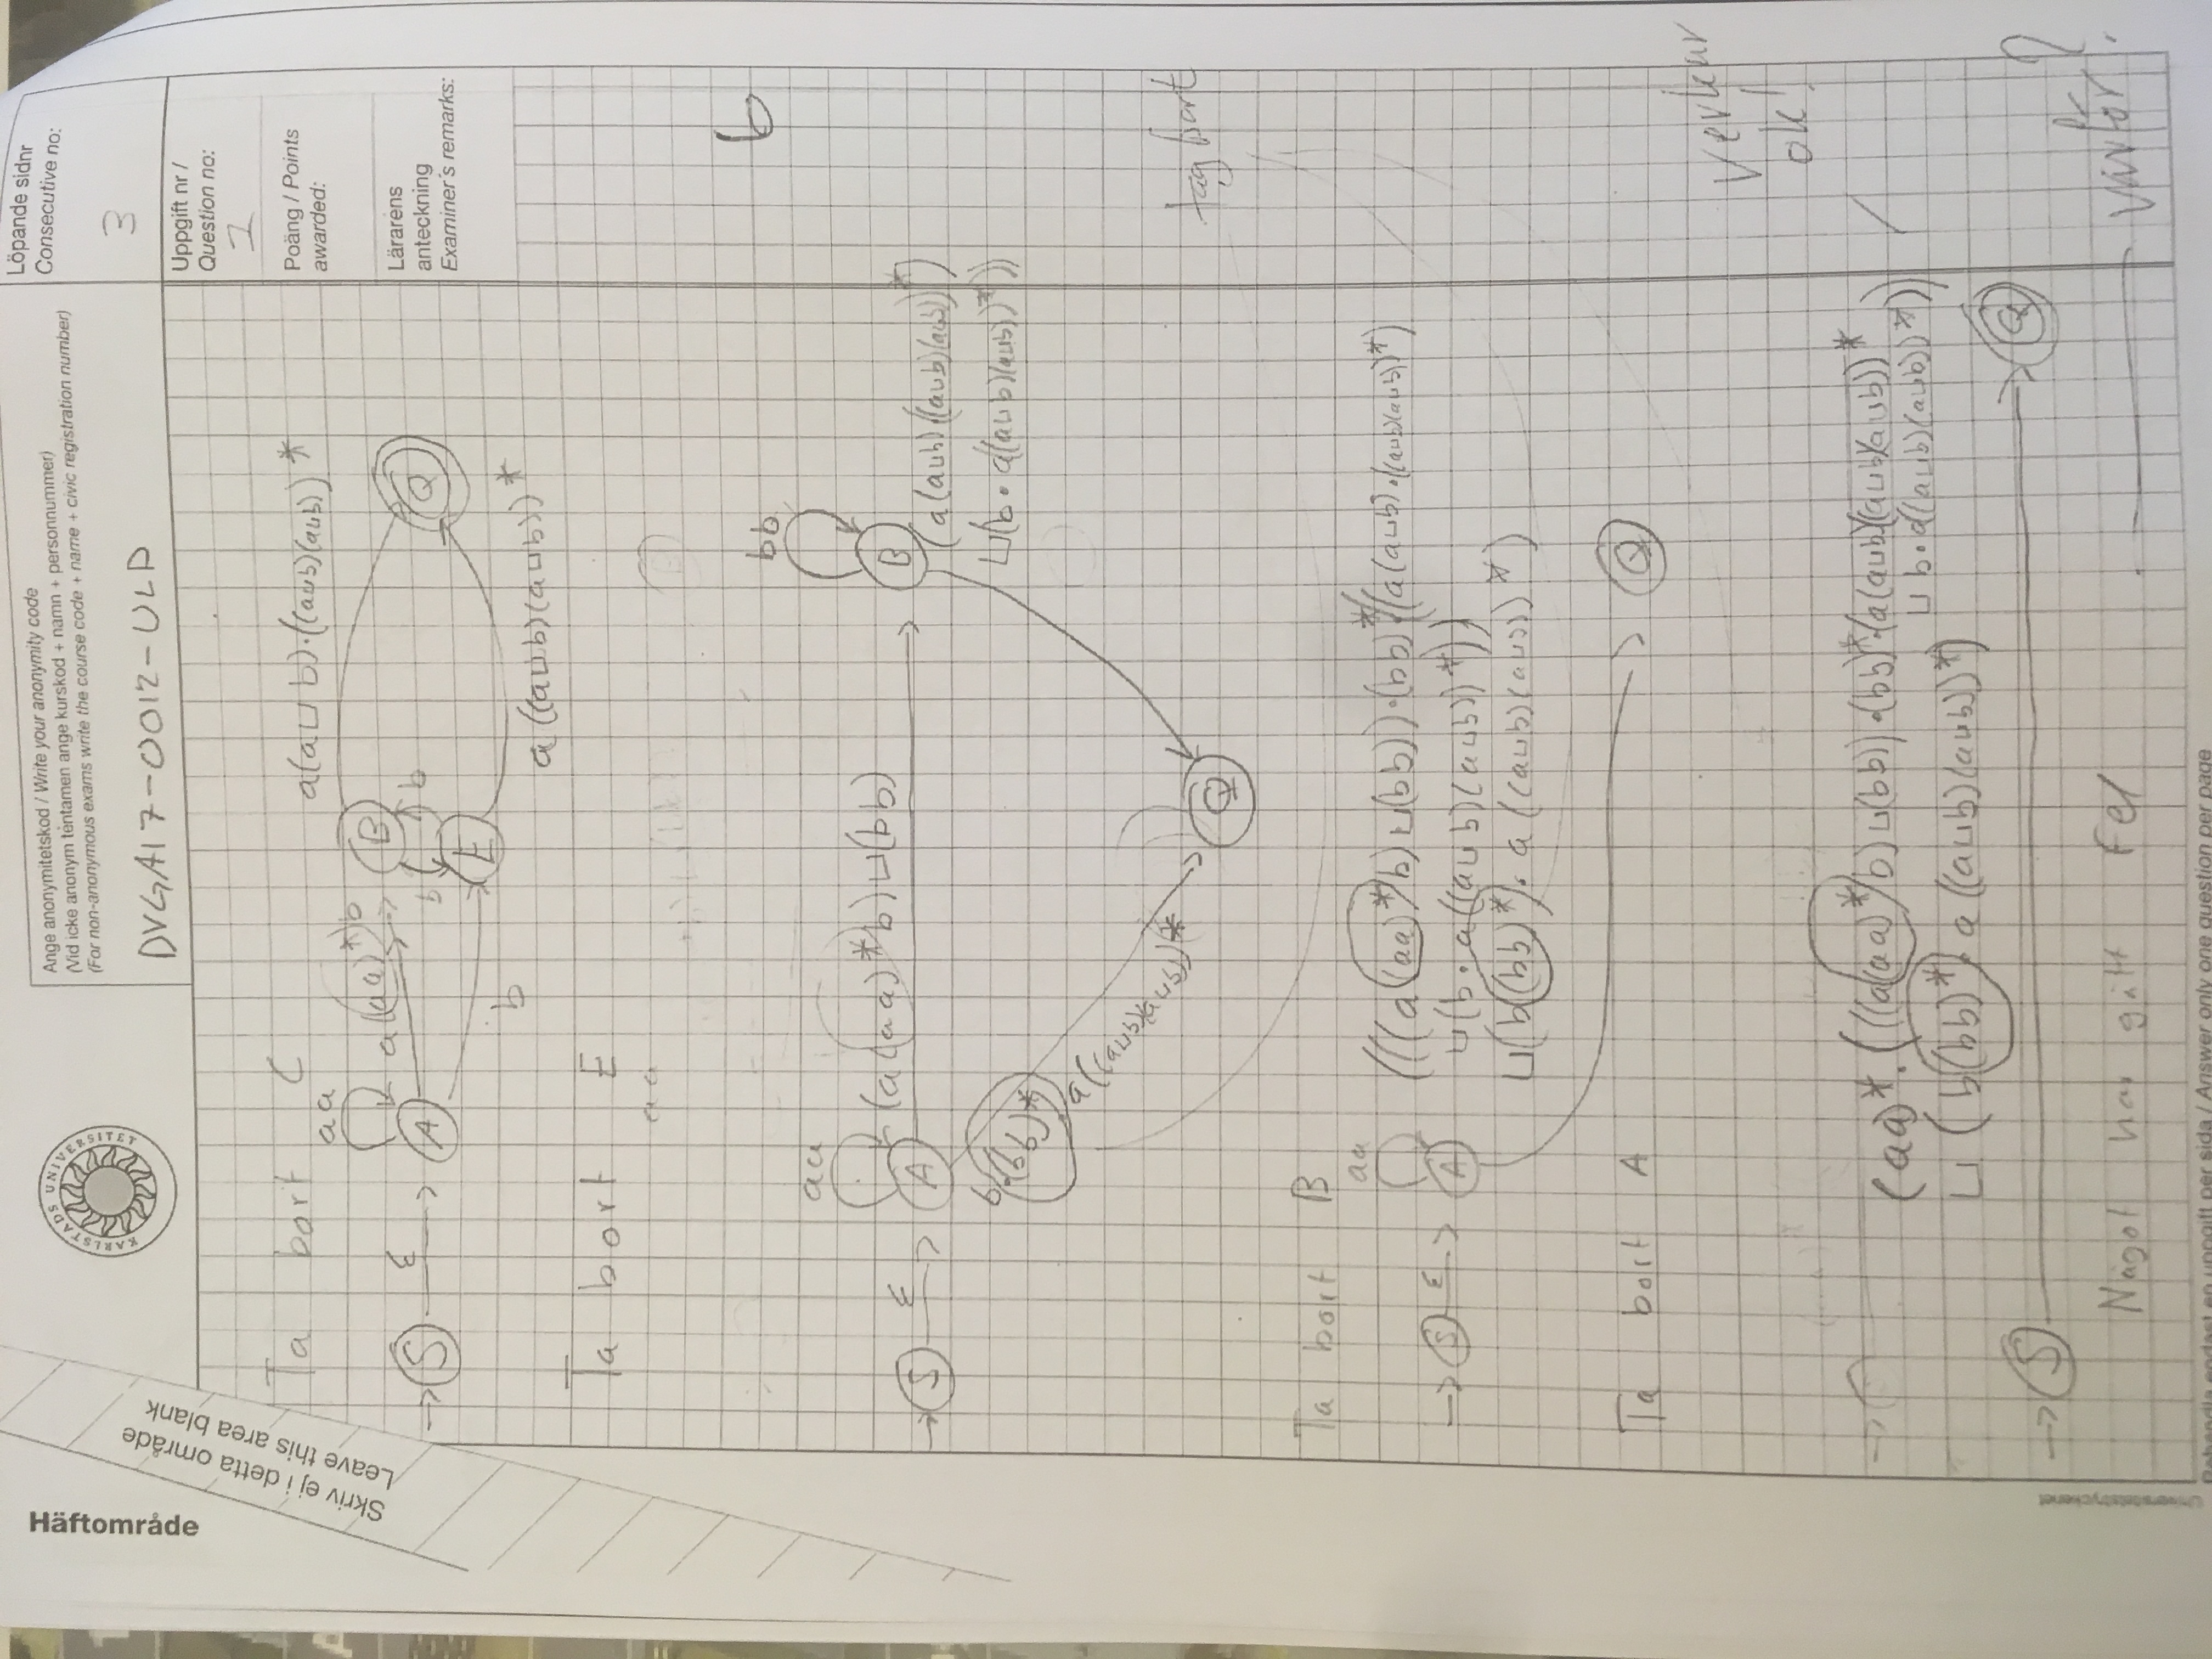 Häftområde
Skriv ej i detta område
Leave this area blank
KARLSTADS UNIVERSITET
Ange anonymitetskod / Write your anonymity code
(Vid icke anonym tentamen ange kurskod + namn + personnummer)
(For non-anonymous exams write the course code + name + civic registration number)
DVGA17-0012-ULP
Löpande sidnr
Consecutive no:
3
Uppgift nr /
Question no:
1
Poäng / Points
awarded:
Lärarens
anteckning
Examiner's remarks:
Ta bort C
a(a∪b)·((a∪b)(a∪b))*
aa
a(aa)*b
B
S
ε
A
b
b
Q
E
b
a((a∪b)(a∪b))*
Ta bort E
aa
6
bb
aa
(a(aa)*b)∪(bb)
B
S
ε
A
(a(a∪b)·((a∪b)(a∪b))*)
∪(b·a((a∪b)(a∪b))*))
b·(bb)*
a((a∪b)(a∪b))*
Q
tag bort
Ta bort B
aa
(((a(aa)*b)∪(bb))·(bb)*·(a(a∪b)·((a∪b)(a∪b))*)
S
ε
A
∪(b·a((a∪b)(a∪b))*))
∪(b(bb)*·a((a∪b)(a∪b))*)
Q
Ta bort A
Verkar
ok!
(aa)*·(((a(aa)*b)∪(bb))·(bb)*·(a(a∪b)((a∪b)(a∪b))*
∪ b·a((a∪b)(a∪b))*))
∪ (b(bb)*·a((a∪b)(a∪b))*)
S
Q
Något har gått fel
Varför?
Universitetstryckeriet
Behandla endast en uppgift per sida / Answer only one question per page